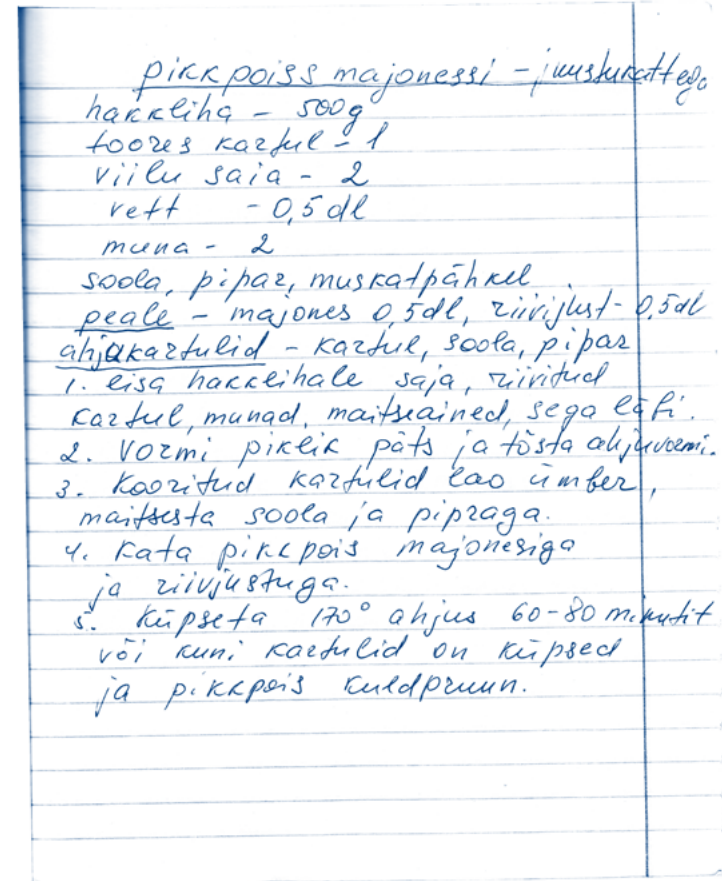 pikkpoiss majonessi - juustukattega
hakkliha - 500g
toores kartul - 1
viilu saia - 2
vett - 0,5 dl
muna - 2
soola, pipar, muskatpähkel
peale - majones 0,5dl, riivijust - 0,5dl
ahjukartulid - kartul, soola, pipar
1. lisa hakklihale saja, riivitud
kartul, munad, maitseained, sega läbi.
2. Vormi piklik päts ja tõsta ahjuvormi.
3. Kooritud kartulid lao ümber,
maitsesta soola ja pipraga.
4. Kata pikkpois majonesiga
ja riivjustuga.
5. Küpseta 170° ahjus 60-80 minutit
või kuni kartulid on küpsed
ja pikkpois kuldpruun.